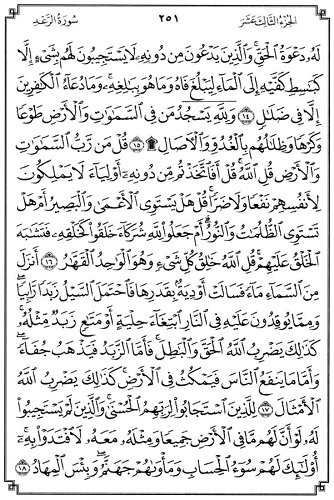 الجزء الثالث عشر ٢٥١ سورة الرعد
لَهُۥ دَعْوَةُ ٱلْحَقِّ ۖ وَٱلَّذِينَ يَدْعُونَ مِن دُونِهِۦ لَا يَسْتَجِيبُونَ لَهُم بِشَىْءٍ إِلَّا
كَبَٰسِطِ كَفَّيْهِ إِلَى ٱلْمَآءِ لِيَبْلُغَ فَاهُ وَمَا هُوَ بِبَٰلِغِهِۦ ۚ وَمَا دُعَآءُ ٱلْكَٰفِرِينَ
إِلَّا فِى ضَلَٰلٍ ١٤ وَلِلَّهِ يَسْجُدُ مَن فِى ٱلسَّمَٰوَٰتِ وَٱلْأَرْضِ طَوْعًا
وَكَرْهًا وَظِلَٰلُهُم بِٱلْغُدُوِّ وَٱلْءَاصَالِ ۩ ١٥ قُلْ مَن رَّبُّ ٱلسَّمَٰوَٰتِ
وَٱلْأَرْضِ قُلِ ٱللَّهُ ۚ قُلْ أَفَٱتَّخَذْتُم مِّن دُونِهِۦٓ أَوْلِيَآءَ لَا يَمْلِكُونَ
لِأَنفُسِهِمْ نَفْعًا وَلَا ضَرًّا ۚ قُلْ هَلْ يَسْتَوِى ٱلْأَعْمَىٰ وَٱلْبَصِيرُ أَمْ هَلْ
تَسْتَوِى ٱلظُّلُمَٰتُ وَٱلنُّورُ ۗ أَمْ جَعَلُوا۟ لِلَّهِ شُرَكَآءَ خَلَقُوا۟ كَخَلْقِهِۦ فَتَشَٰبَهَ
ٱلْخَلْقُ عَلَيْهِمْ ۚ قُلِ ٱللَّهُ خَٰلِقُ كُلِّ شَىْءٍ وَهُوَ ٱلْوَٰحِدُ ٱلْقَهَّٰرُ ١٦ أَنزَلَ
مِنَ ٱلسَّمَآءِ مَآءً فَسَالَتْ أَوْدِيَةٌۢ بِقَدَرِهَا فَٱحْتَمَلَ ٱلسَّيْلُ زَبَدًا رَّابِيًا ۚ
وَمِمَّا يُوقِدُونَ عَلَيْهِ فِى ٱلنَّارِ ٱبْتِغَآءَ حِلْيَةٍ أَوْ مَتَٰعٍ زَبَدٌ مِّثْلُهُۥ ۚ
كَذَٰلِكَ يَضْرِبُ ٱللَّهُ ٱلْحَقَّ وَٱلْبَٰطِلَ ۚ فَأَمَّا ٱلزَّبَدُ فَيَذْهَبُ جُفَآءً ۖ
وَأَمَّا مَا يَنفَعُ ٱلنَّاسَ فَيَمْكُثُ فِى ٱلْأَرْضِ ۚ كَذَٰلِكَ يَضْرِبُ ٱللَّهُ
ٱلْأَمْثَالَ ١٧ لِلَّذِينَ ٱسْتَجَابُوا۟ لِرَبِّهِمُ ٱلْحُسْنَىٰ ۚ وَٱلَّذِينَ لَمْ يَسْتَجِيبُوا۟
لَهُۥ لَوْ أَنَّ لَهُم مَّا فِى ٱلْأَرْضِ جَمِيعًا وَمِثْلَهُۥ مَعَهُۥ لَٱفْتَدَوْا۟ بِهِۦٓ ۚ
أُو۟لَٰٓئِكَ لَهُمْ سُوٓءُ ٱلْحِسَابِ وَمَأْوَىٰهُمْ جَهَنَّمُ ۖ وَبِئْسَ ٱلْمِهَادُ ١٨